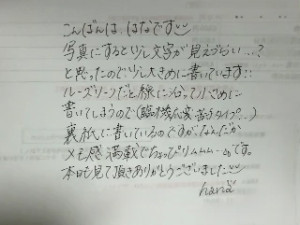 こんばんは、はなです
写真にすると少し文字が見えづらい…?
と思ったので少し大きめに書いています!!
ルーズリーフだと線に沿って
書いてしまうので(臨機応変苦手タイプ…)
裏紙に書いているのですが、なんだか
メモ感満載でちょっぴりムムム…です。
本日も見て頂きありがとうございました
hana